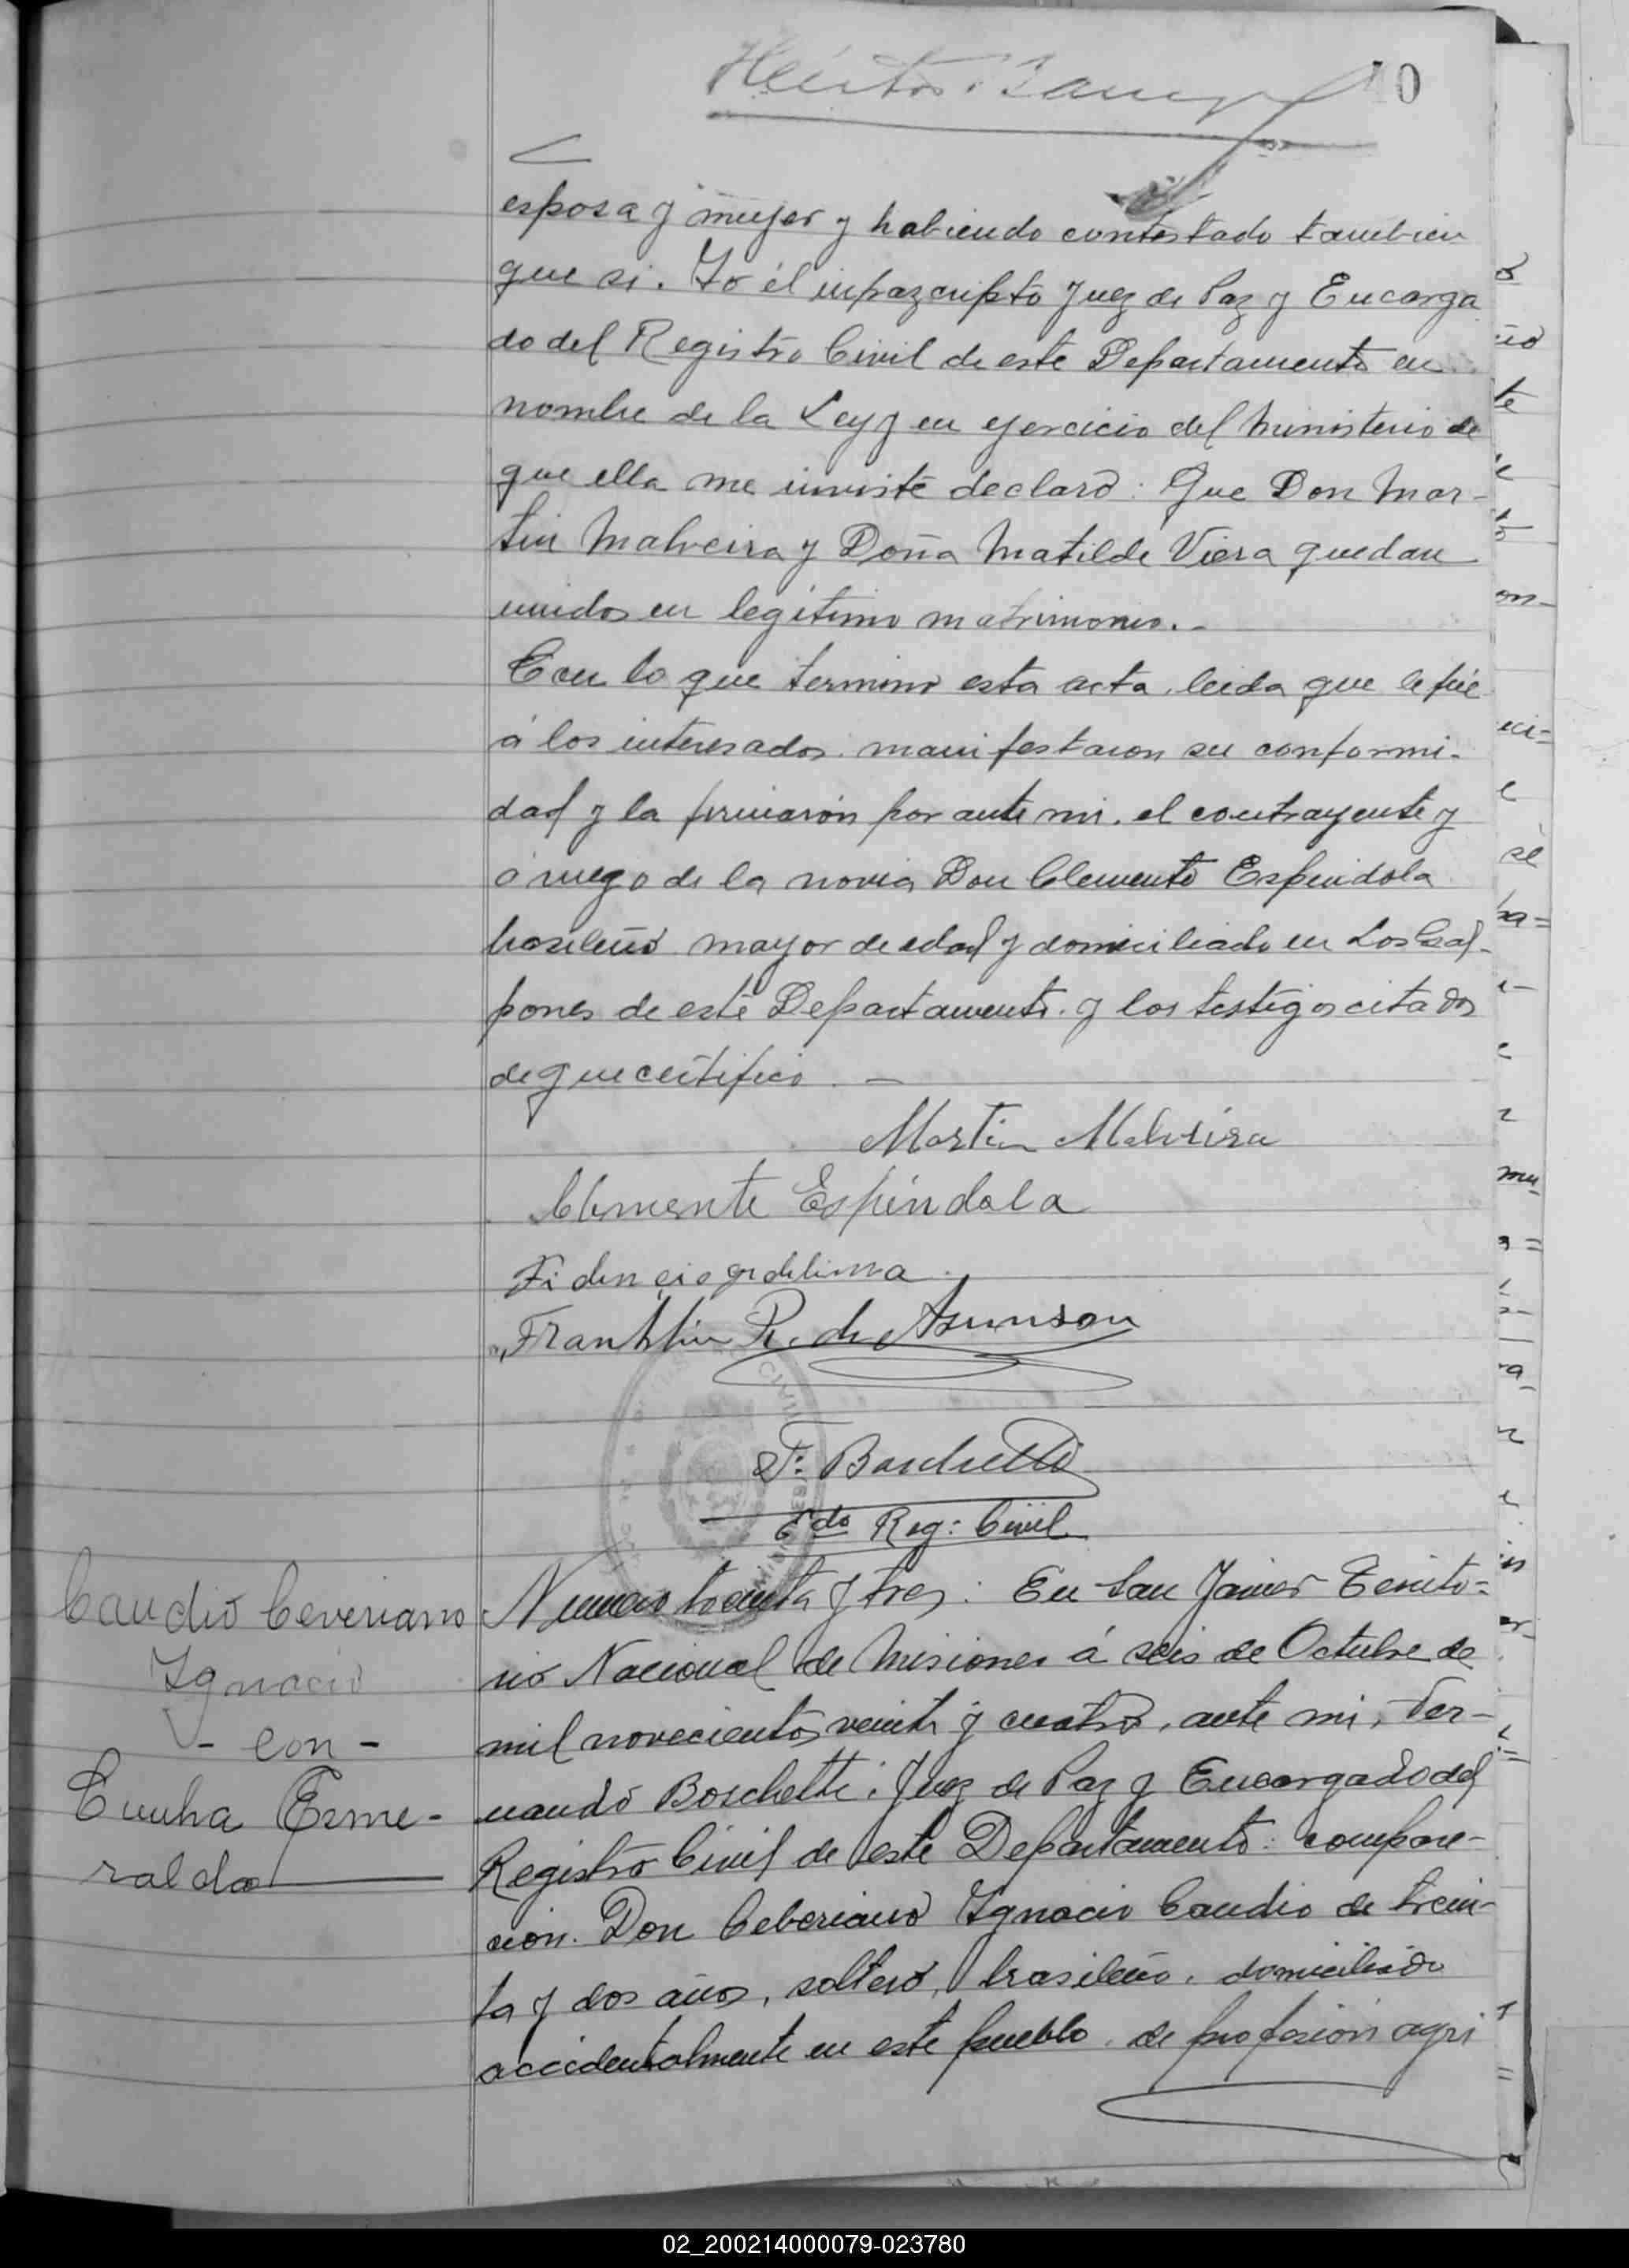 10
esposa y mujer y habiendo contestado tambien
que si. Yo él infrazcripto Juez de Paz y Encarga
do del Registro Civil de este Departamento en
nombre de la Ley y en ejercicio del Ministerio de
que ella me inviste declaro: Que Don Mar-
tin Malveira y Doña Matilde Viera quedan
unidos en legitimo matrimonio.-
Con lo que termino esta acta, leida que le fué
á los interesados manifestaron su conformi-
dad y la firmarón por ante mi, el contrayente y
á ruego de la novia Don Clemente Espindola
brasileño mayor de edad y domiciliado en Los Gal-
pones de este Departamento y los testigos citados
de que certifico. —
Martin Malveira
Clemente Espindola
Fidencio
Franklin R. de Asunson
F. Boschetti
Edo Reg: Civil
Caudio Ceveriano
Ignacio
- con -
Cunha Esme-
ralda
Numero treinta y tres: En San Javier Territo=
rio Nacional de Misiones á seis de Octubre de
mil novecientos veinte y cuatro, ante mi, Fer-
nando Boschetti, Juez de Paz y Encargado del
Registro Civil de este Departamento: compare-
cion. Don Ceberiano Ignacio Caudio de trein-
ta y dos años, soltero, brasileño, domiciliado
accidentalmente en este pueblo, de profesión agri
02_200214000079-023780